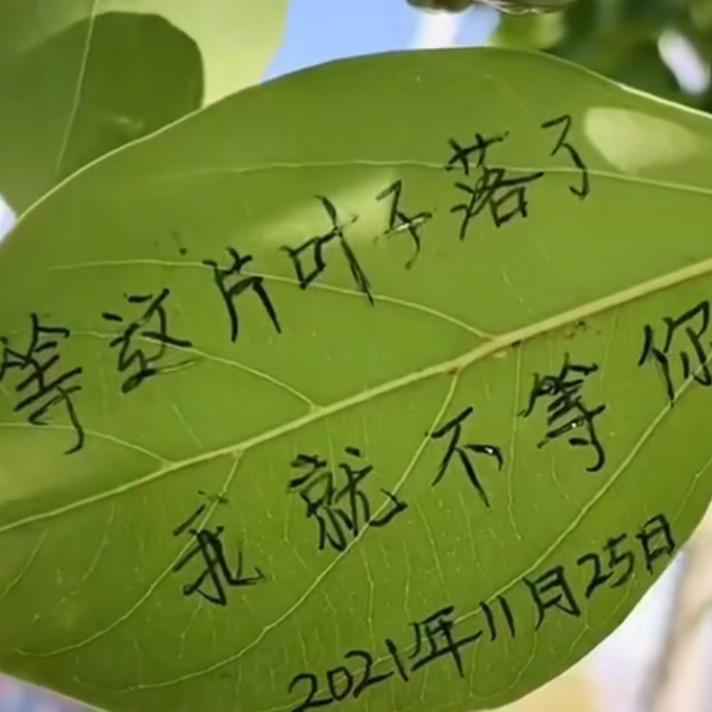 等这片叶子落了
我就不等你
2021年11月25日